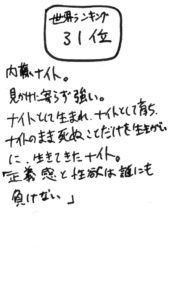 世界ランキング
31位
内藤ナイト。
見かけに寄らず強い。
ナイトとして生まれ、ナイトとして育ち、
ナイトのまま死ぬことだけを生きがい
に、生きてきたナイト。
「正義感と性欲は誰にも
負けない」